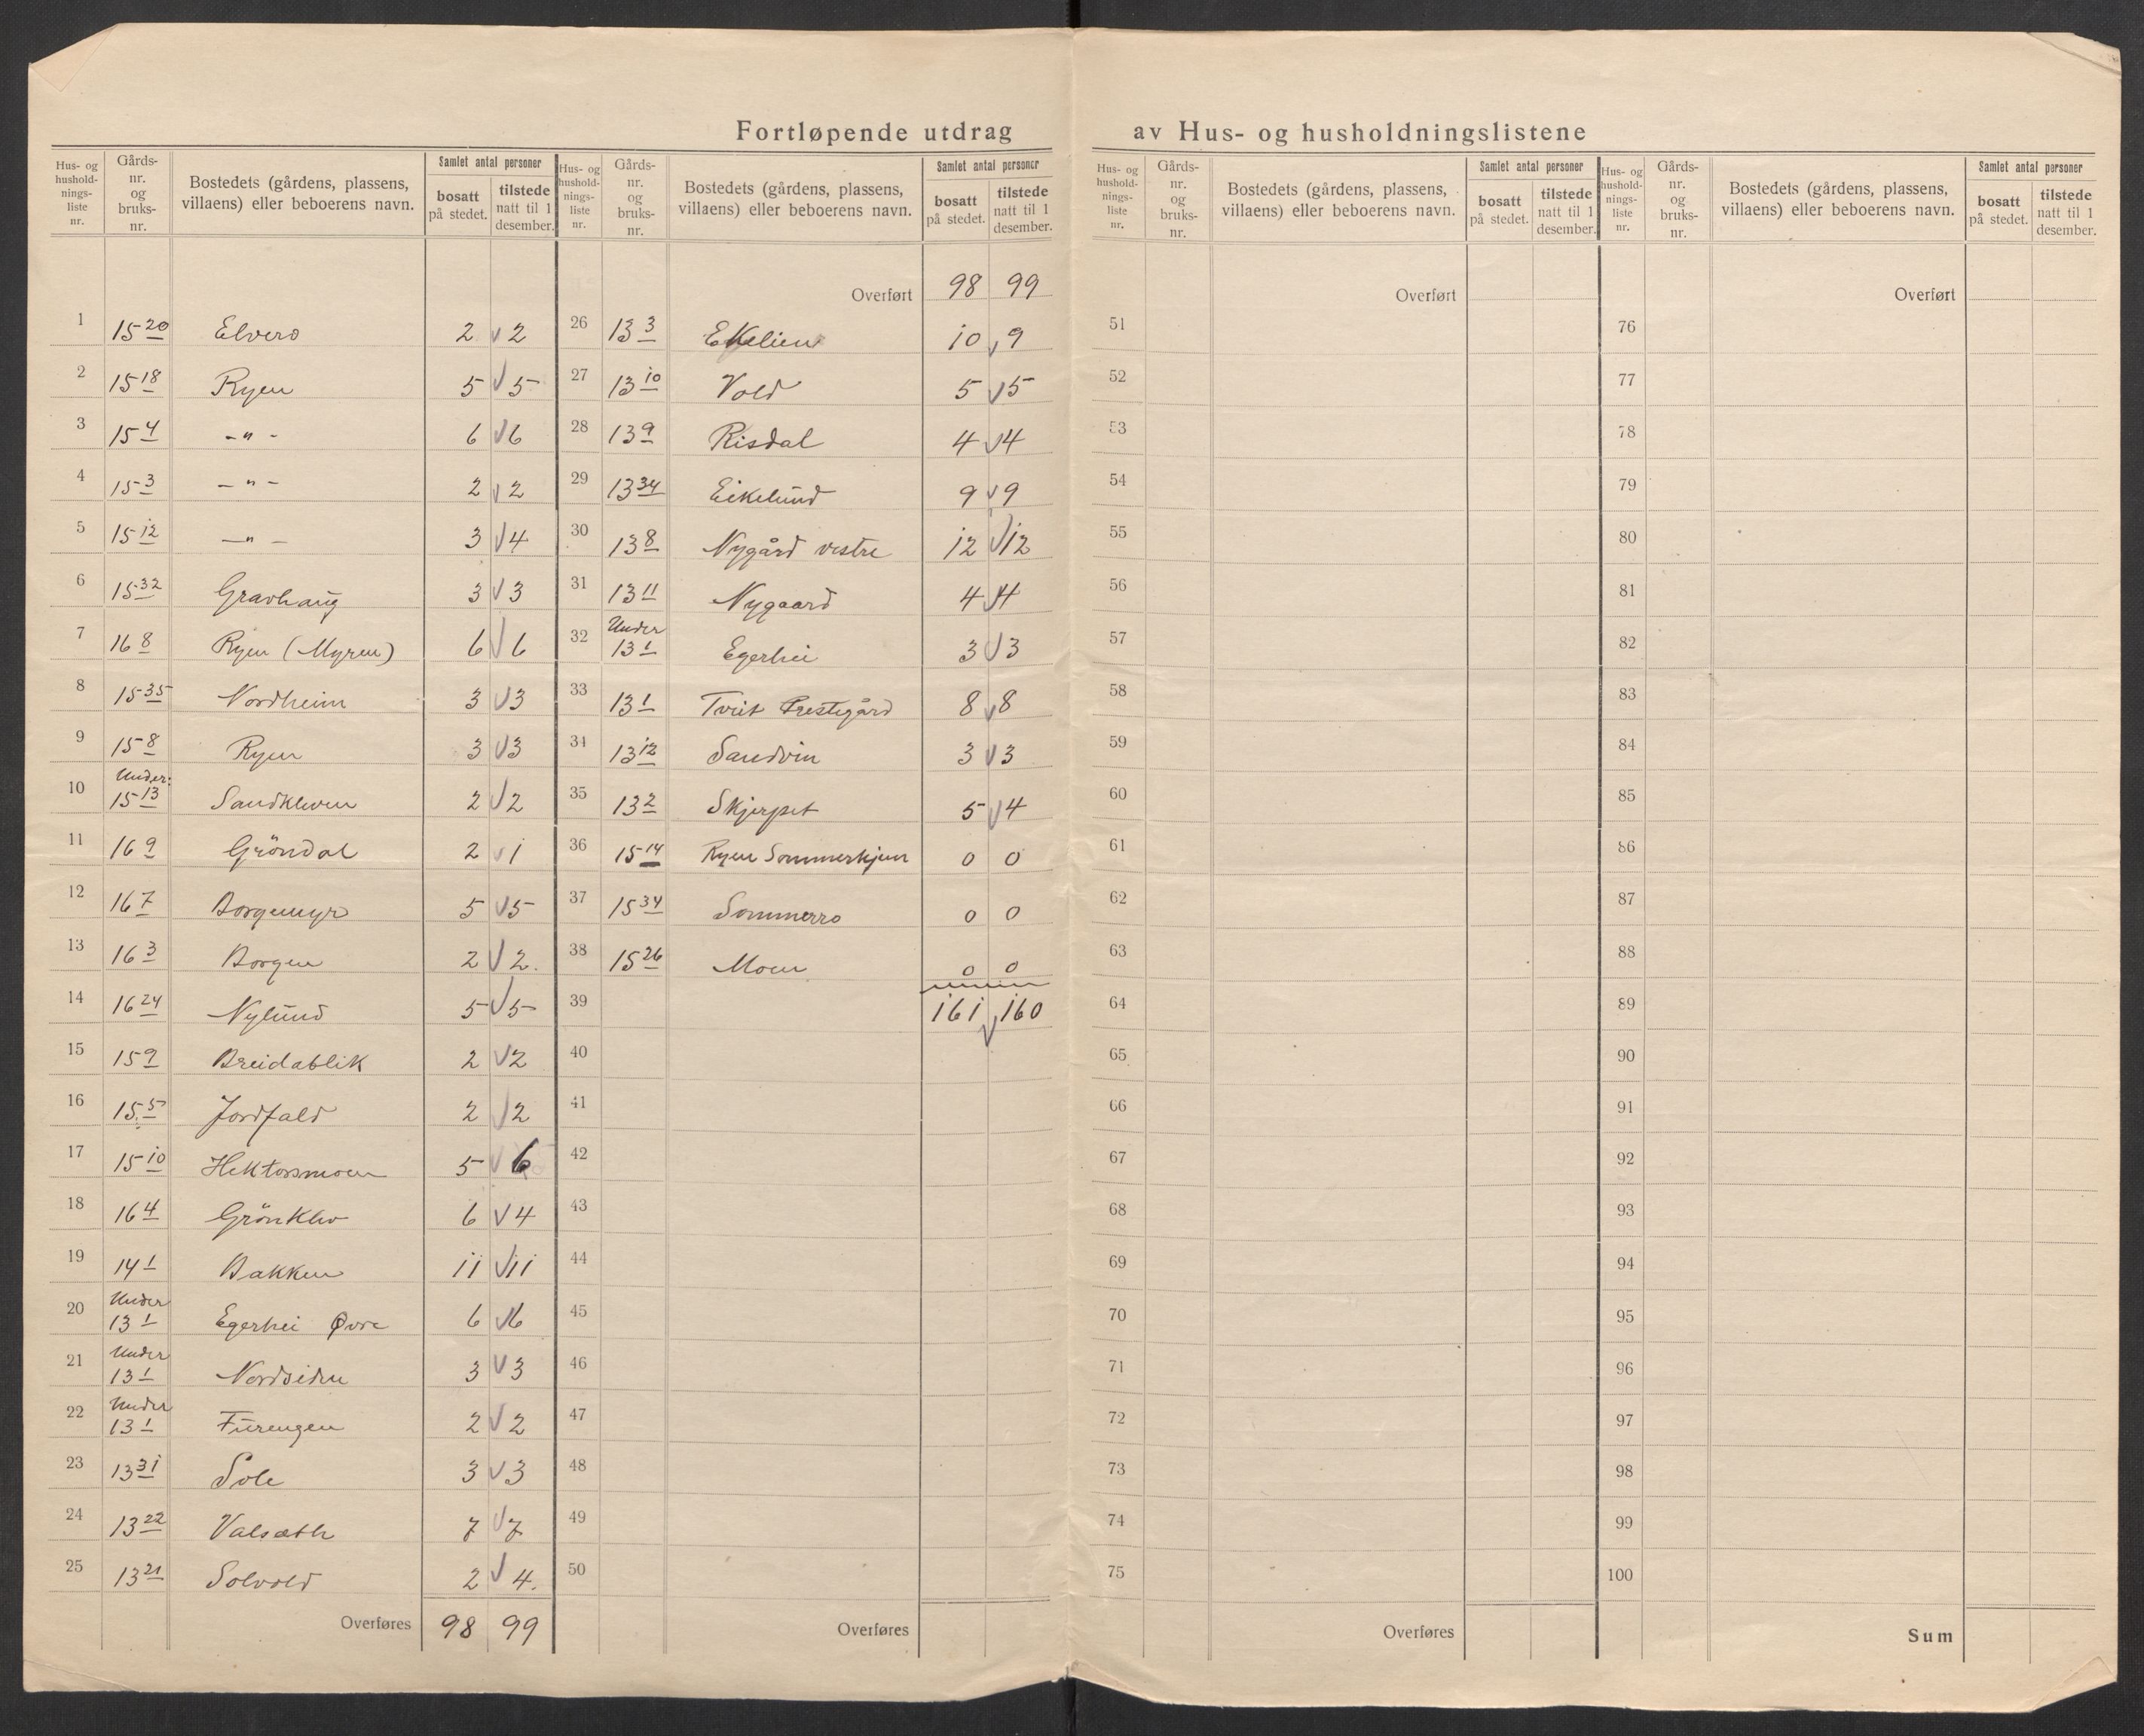 Fortløpende utdrag av Hus- og husholdningslistene
Hus- og husholdningsliste nr. | Gårdsnr. og bruksnr. | Bostedets (gårdens, plassens, villaens) eller beboerens navn. | Samlet antal personer bosatt på stedet. | tilstede natt til 1 desember.
1 15 20 Elvero 2 v 2
2 15 18 Ryen 5 v 5
3 15 4 - " - 6 v 6
4 15 3 - " - 2 v 2
5 15 12 - " - 3 v 4
6 15 32 Gravhaug 3 v 3
7 16 8 Ryen (Myren) 6 v 6
8 15 35 Nordheim 3 v 3
9 15 8 Ryen 3 v 3
10 Under: 15 13 Sandkleven 2 v 2
11 16 9 Gröndal 2 v 1
12 16 7 Borgemyr 5 v 5
13 16 3 Borgen 2 v 2.
14 16 24 Nylund 5 v 5
15 15 9 Breidablik 2 v 2
16 15 5 Jordfald 2 v 2
17 15 10 Hektorsmoen 5 v 6
18 16 4 Grönklev 6 v 4
19 14 1 Bakken 11 v 11
20 Under 13 1 Egerhei Øvre 6 v 6
21 Under 13 1 Nordsiden 3 v 3
22 Under 13 1 Furengen 2 v 2
23 13 31 Sole 3 v 3
24 13 22 Valsæth 7 v 7
25 13 21 Solvold 2 v 4.
Overføres 98 99
Hus- og husholdningsliste nr. | Gårdsnr. og bruksnr. | Bostedets (gårdens, plassens, villaens) eller beboerens navn. | Samlet antal personer bosatt på stedet. | tilstede natt til 1 desember.
Overført 98 99
26 13 3 Ekelien 10 v 9
27 13 10 Vold 5 v 5
28 13 9 Risdal 4 v 4
29 13 34 Eikelund 9 v 9
30 13 8 Nygård vestre 12 v 12
31 13 11 Nygaard 4 v 4
32 Under 13 1 Egerhei 3 v 3
33 13 1 Tveit Prestegård 8 v 8
34 13 12 Sandvin 3 v 3
35 13 2 Skjerpet 5 v 4
36 15 14 Ryen Sommerhjem 0 0
37 15 34 Sommerro 0 0
38 15 26 Moen 0 0
39 161 v 160
40
41
42
43
44
45
46
47
48
49
50
Overføres
Hus- og husholdningsliste nr. | Gårdsnr. og bruksnr. | Bostedets (gårdens, plassens, villaens) eller beboerens navn. | Samlet antal personer bosatt på stedet. | tilstede natt til 1 desember.
Overført
51
52
53
54
55
56
57
58
59
60
61
62
63
64
65
66
67
68
69
70
71
72
73
74
75
Overføres
Hus- og husholdningsliste nr. | Gårdsnr. og bruksnr. | Bostedets (gårdens, plassens, villaens) eller beboerens navn. | Samlet antal personer bosatt på stedet. | tilstede natt til 1 desember.
Overført
76
77
78
79
80
81
82
83
84
85
86
87
88
89
90
91
92
93
94
95
96
97
98
99
100
Sum